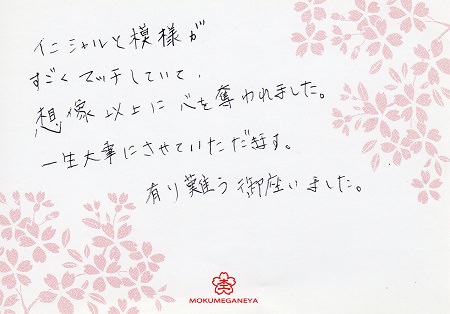 イニシャルと模様が
すごくマッチしていて、
想像以上に心を奪われました。
一生大事にさせていただきます。
有り難う御座いました。
MOKUMEGANEYA